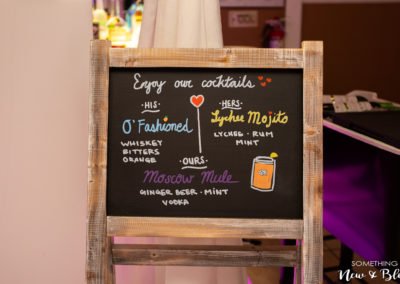 Enjoy our cocktails
·HIS·
O'Fashioned
WHISKEY
BITTERS
ORANGE
·HERS·
Lychee Mojito
LYCHEE · RUM
MINT
·OURS·
Moscow Mule
GINGER BEER · MINT
VODKA
SOMETHING
New & Bl